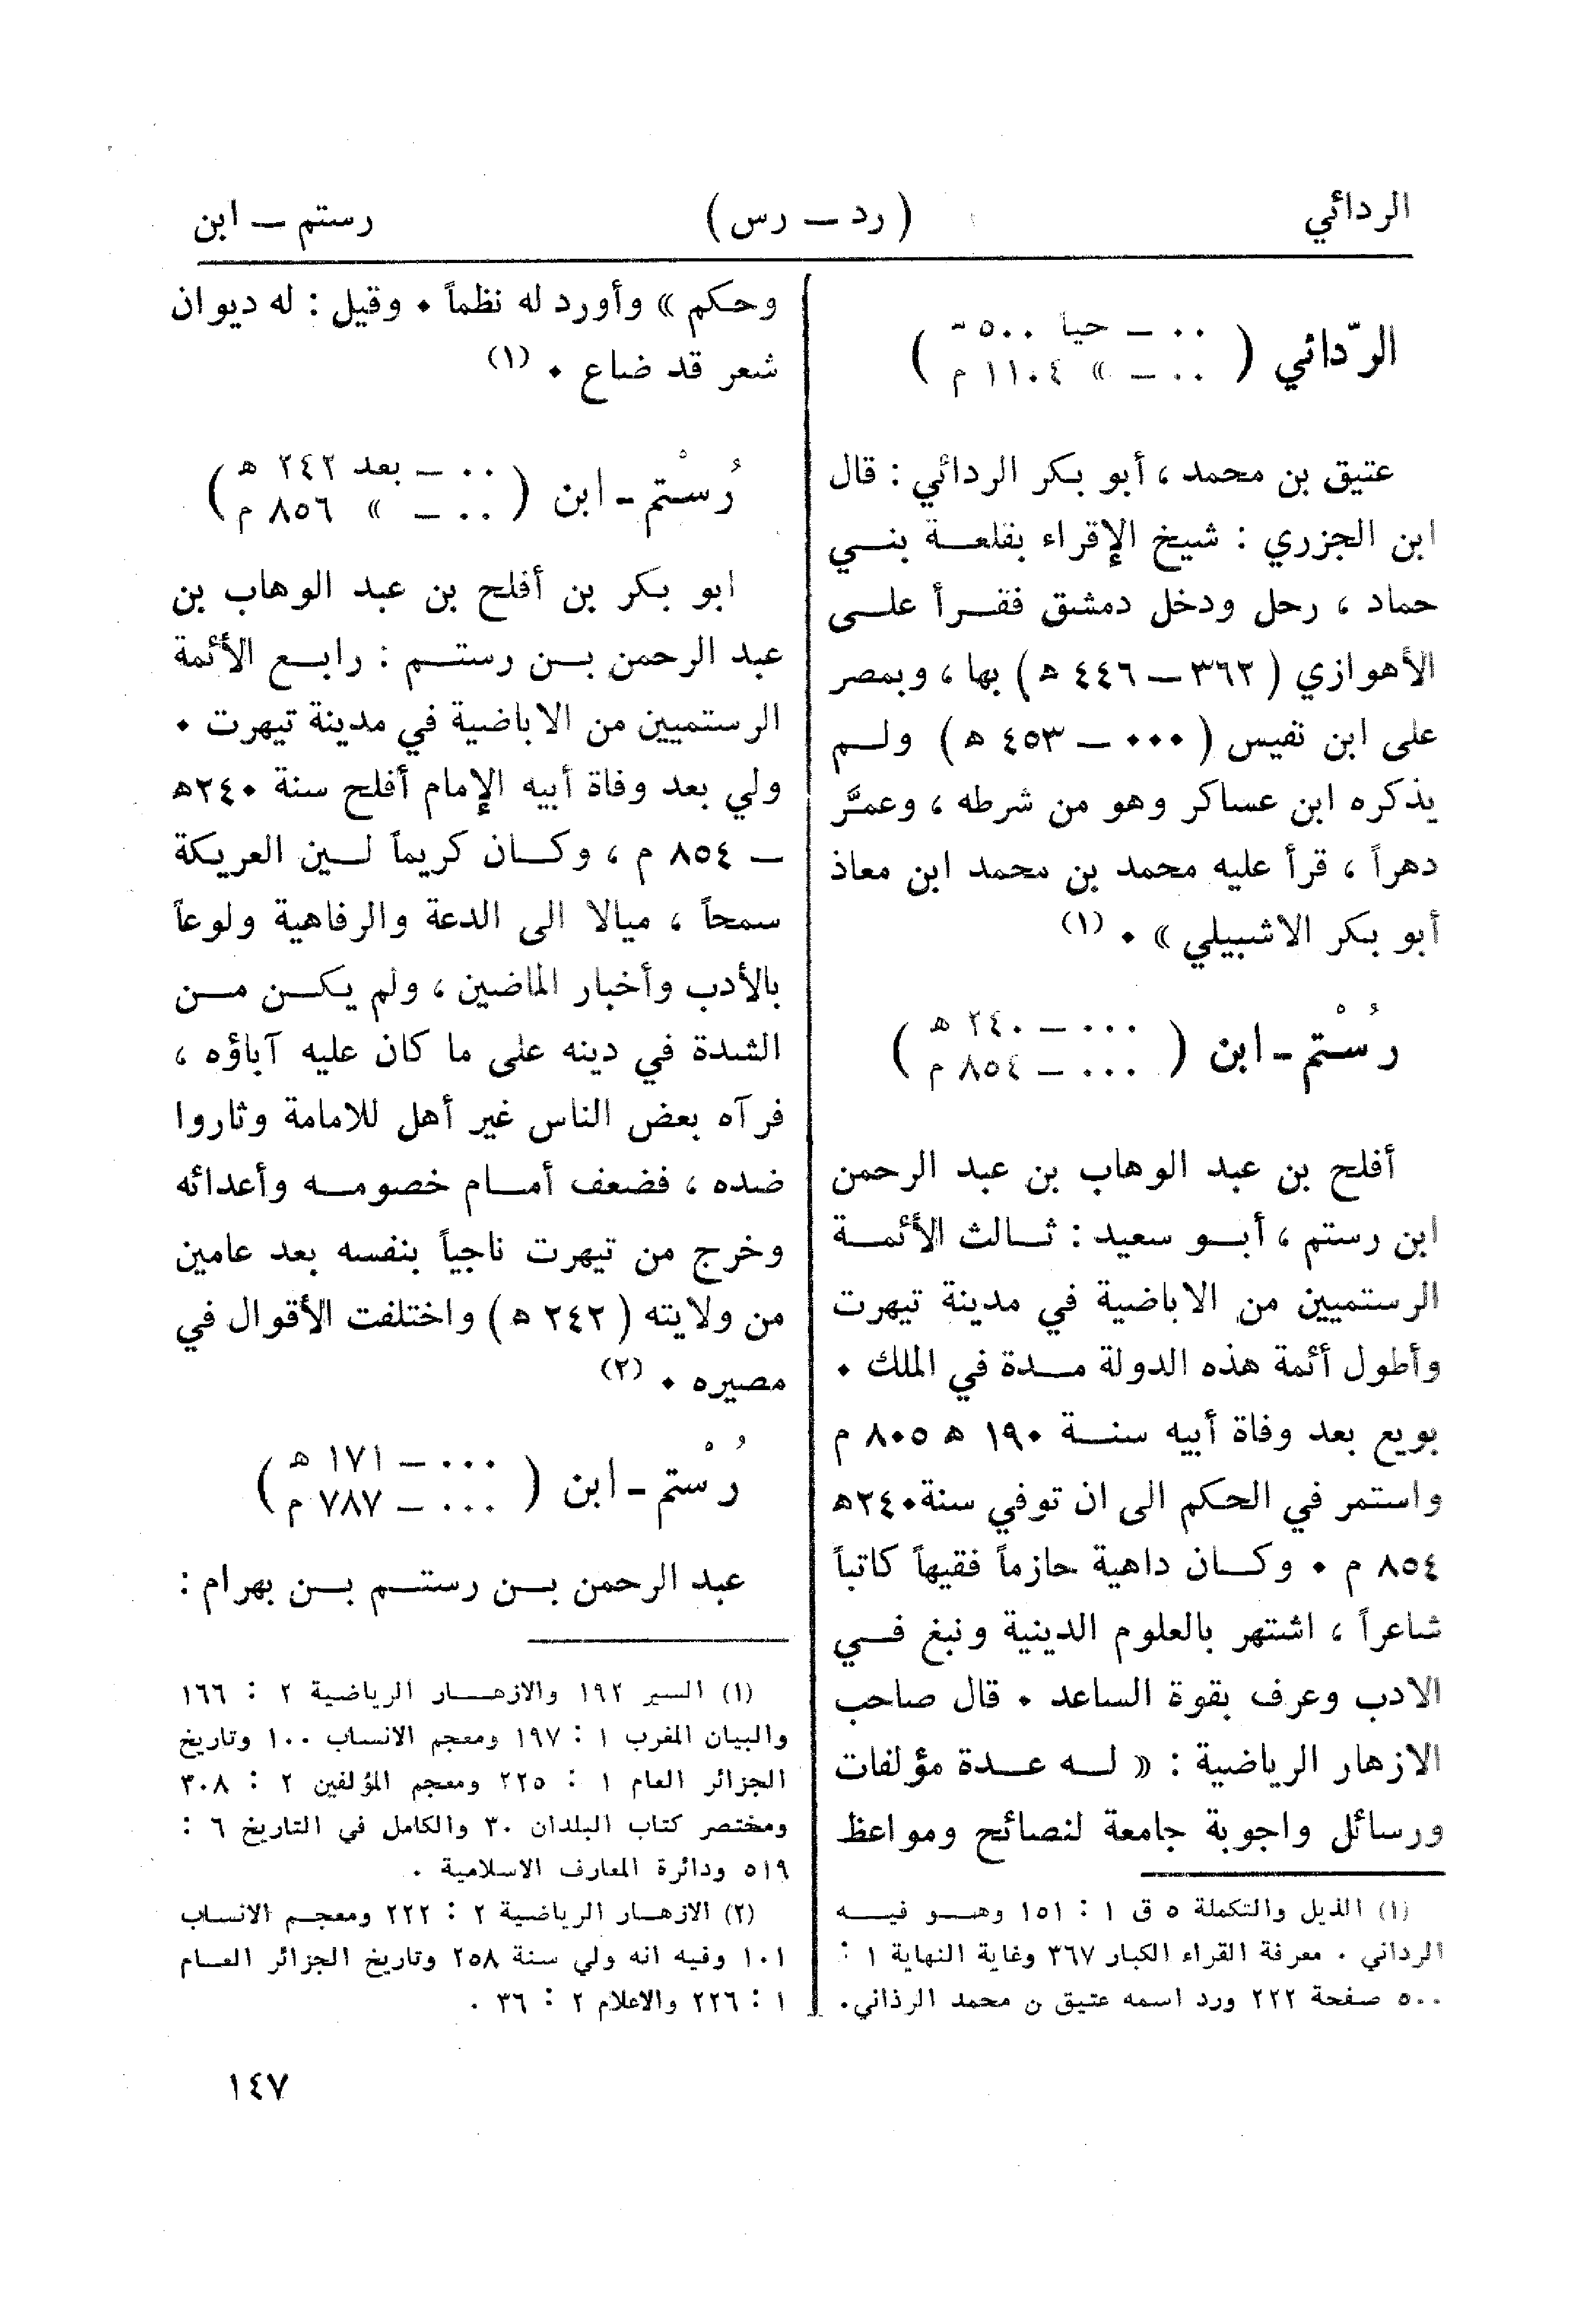 الردائي
( رد ــ رس )
رستم ــ ابن
الرّدائي ( ٠٠ ــ حيا ٥٠٠ هـ
٠٠ ــ » ١١٠٤ م )
عتيق بن محمد ، أبو بكر الردائي : قال
ابن الجزري : شيخ الإقراء بقلعة بني
حماد ، رحل ودخل دمشق فقرأ على
الأهوازي ( ٣٦٢ ــ ٤٤٦ هـ ) بها ، وبمصر
على ابن نفيس ( ٠٠٠ ــ ٤٥٣ هـ ) ولم
يذكره ابن عساكر وهو من شرطه ، وعمَّر
دهراً ، قرأ عليه محمد بن محمد ابن معاذ
أبو بكر الاشبيلي » ٠ (١)
رُسْتم ـ ابن ( ٠٠٠ ــ ٢٤٠ هـ
٠٠٠ ــ ٨٥٤ م )
أفلح بن عبد الوهاب بن عبد الرحمن
ابن رستم ، أبو سعيد : ثالث الأئمة
الرستميين من الاباضية في مدينة تيهرت
وأطول أئمة هذه الدولة مدة في الملك ٠
بويع بعد وفاة أبيه سنة ١٩٠ هـ ٨٠٥ م
واستمر في الحكم الى ان توفي سنة ٢٤٠هـ
٨٥٤ م ٠ وكان داهية حازماً فقيهاً كاتباً
شاعراً ، اشتهر بالعلوم الدينية ونبغ في
الادب وعرف بقوة الساعد ٠ قال صاحب
الازهار الرياضية : « له عدة مؤلفات
ورسائل واجوبة جامعة لنصائح ومواعظ
(١) الذيل والتكملة ٥ ق ١ : ١٥١ وهو فيه
الرداني . معرفة القراء الكبار ٣٦٧ وغاية النهاية ١ :
٥٠٠ صفحة ٢٢٢ ورد اسمه عتيق ن محمد الرذاني.
وحكم » وأورد له نظماً ٠ وقيل : له ديوان
شعر قد ضاع ٠ (١)
رُسْتم ـ ابن ( ٠٠ ــ بعد ٢٤٢ هـ
٠٠ ــ » ٨٥٦ م )
ابو بكر بن أفلح بن عبد الوهاب بن
عبد الرحمن بن رستم : رابع الأئمة
الرستميين من الاباضية في مدينة تيهرت ٠
ولي بعد وفاة أبيه الإمام أفلح سنة ٢٤٠هـ
ــ ٨٥٤ م ، وكان كريماً لين العريكة
سمحاً ، ميالا الى الدعة والرفاهية ولوعاً
بالأدب وأخبار الماضين ، ولم يكن من
الشدة في دينه على ما كان عليه آباؤه ،
فرآه بعض الناس غير أهل للامامة وثاروا
ضده ، فضعف أمام خصومه وأعدائه
وخرج من تيهرت ناجياً بنفسه بعد عامين
من ولايته ( ٢٤٢ هـ ) واختلفت الأقوال في
مصيره ٠ (٢)
رُسْتم ـ ابن ( ٠٠٠ ــ ١٧١ هـ
٠٠٠ ــ ٧٨٧ م )
عبد الرحمن بن رستم بن بهرام :
(١) السير ١٩٢ والازهار الرياضية ٢ : ١٦٦
والبيان المغرب ١ : ١٩٧ ومعجم الانساب ١٠٠ وتاريخ
الجزائر العام ١ : ٢٢٥ ومعجم المؤلفين ٢ : ٣٠٨
ومختصر كتاب البلدان ٣٠ والكامل في التاريخ ٦ :
٥١٩ ودائرة المعارف الاسلامية .
(٢) الازهار الرياضية ٢ : ٢٢٢ ومعجم الانساب
١٠١ وفيه انه ولي سنة ٢٥٨ وتاريخ الجزائر العام
١ : ٢٢٦ والاعلام ٢ : ٣٦ .
١٤٧